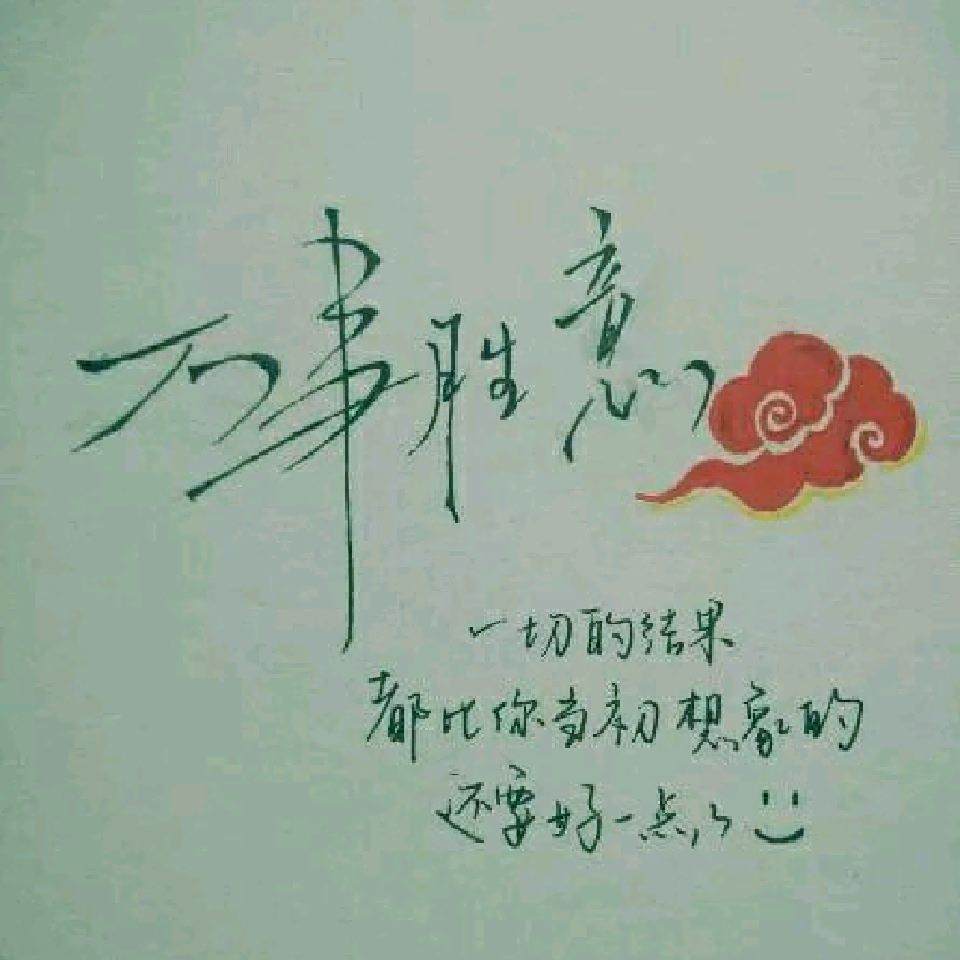 万事胜意
一切的结果
都比你当初想象的
还要好一点